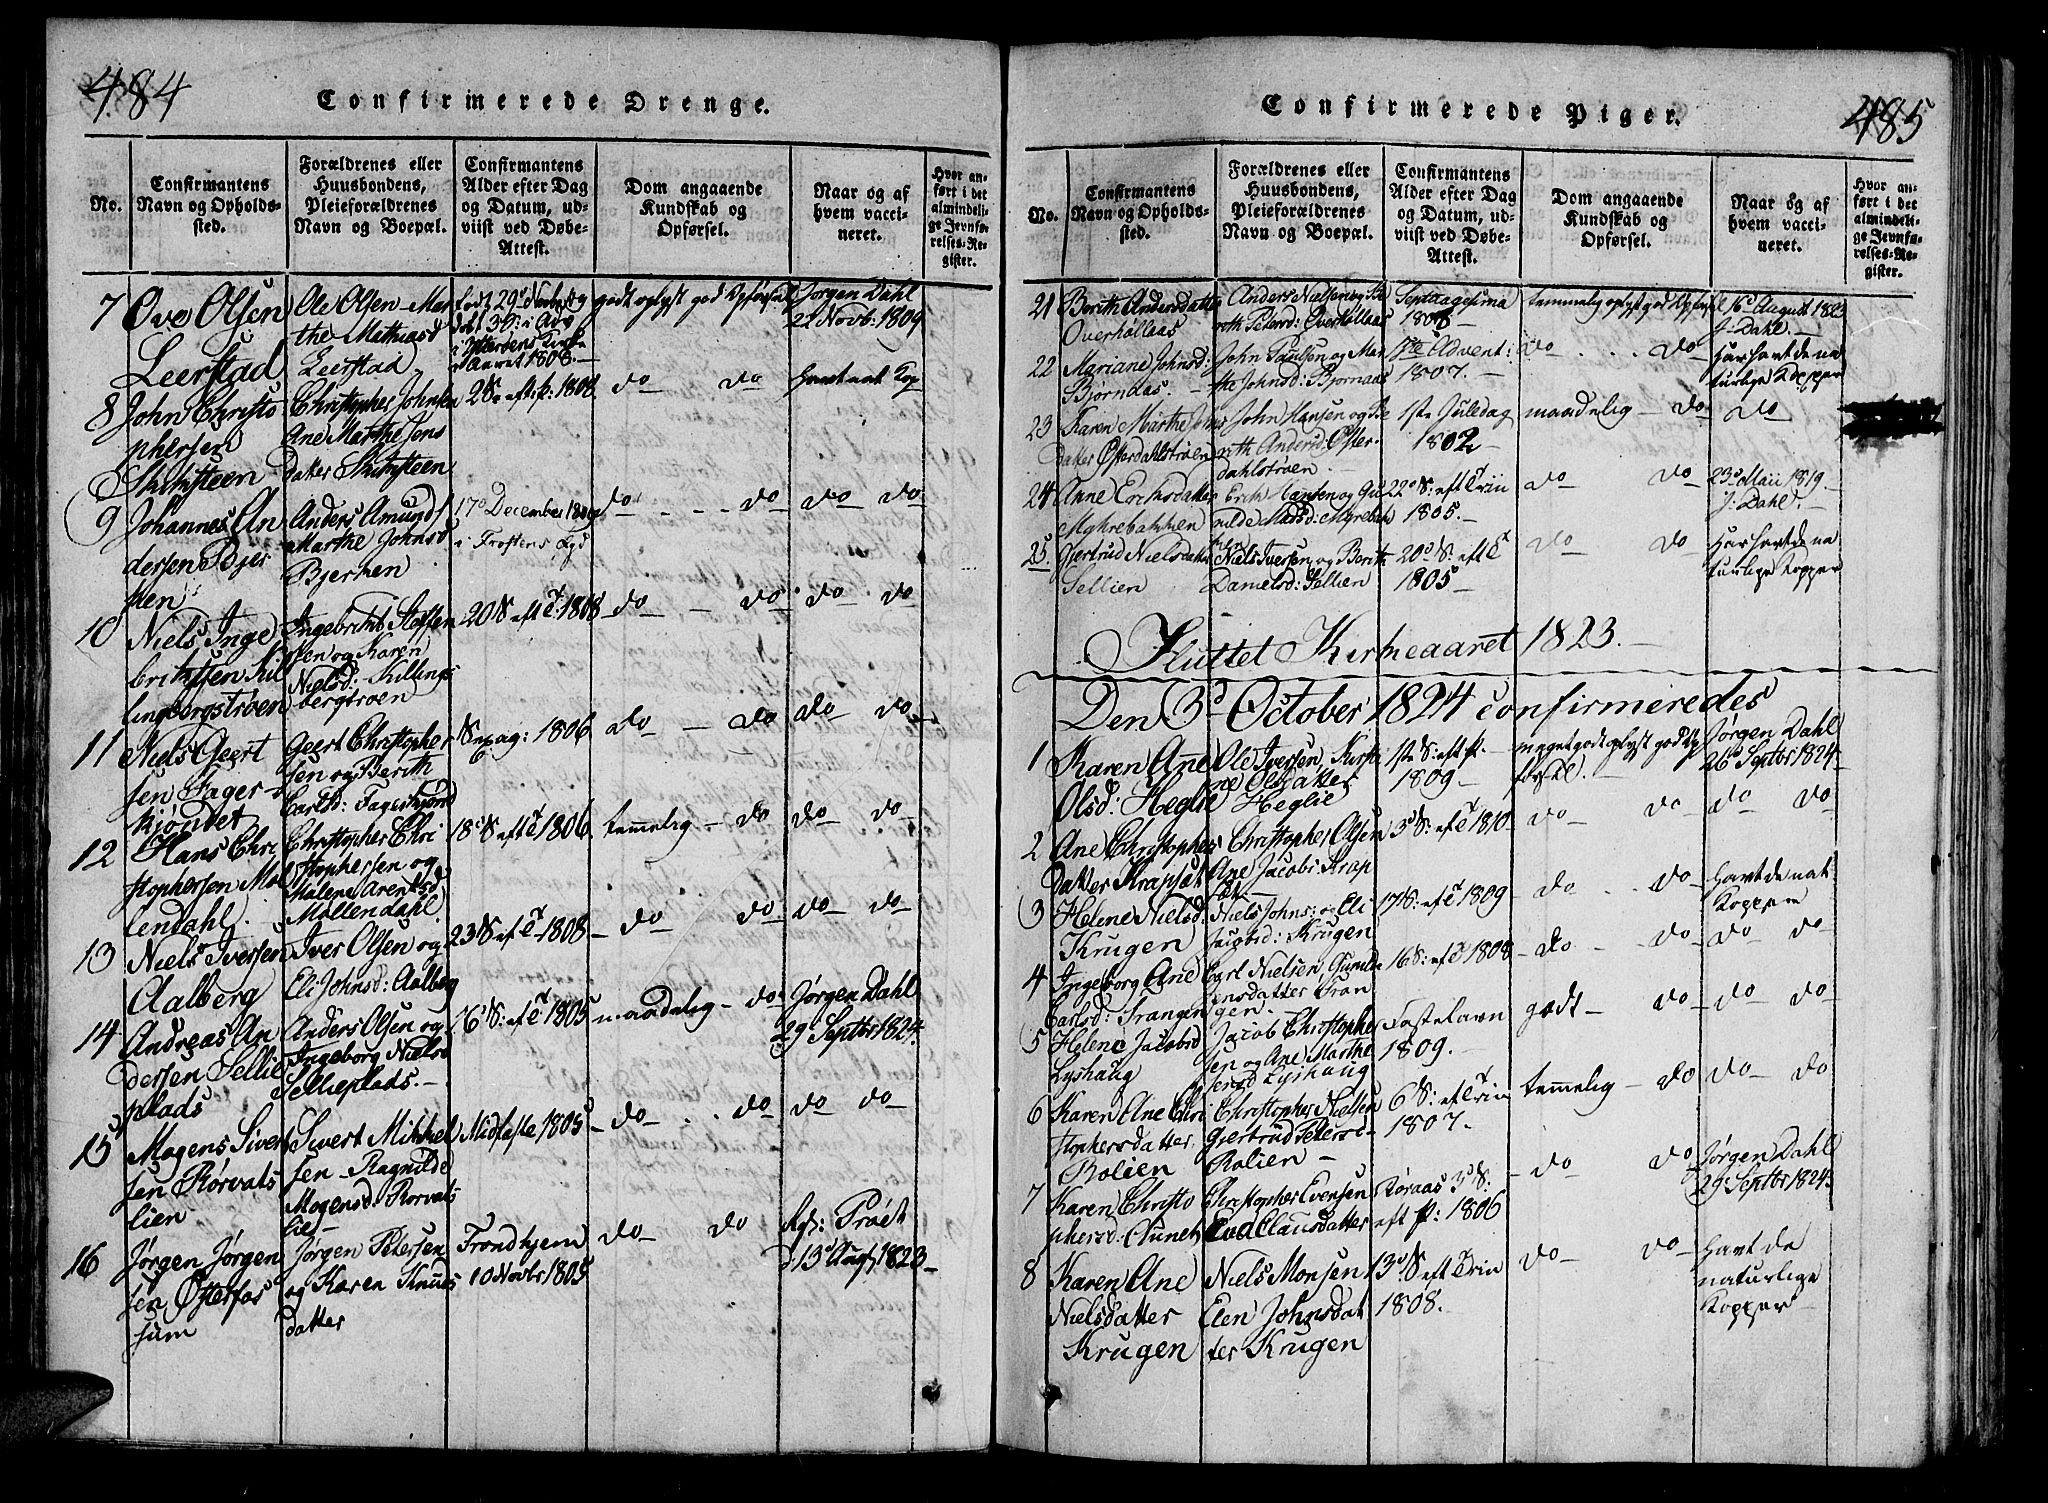 484
Confirmerede Drenge.
No.
Confirmantens
Navn og Opholds-
sted.
Forældrenes eller
Huusbondens,
Pleieforældrenes
Navn og Boepæl.
Confirmantens
Alder efter Dag
og Datum, ud-
viist ved Døbe-
Attest.
Dom angaaende
Kundskab og
Opførsel.
Naar og af
hvem vacci-
neret.
Hvor an-
ført i det
almindeli-
ge Jevnfø-
relses-Re-
gister.
7
Ove Olsen
Leerstad
Ole Olsen Mar
the Mathiasd
Leerstad
født 29d Novbr og
døbt 3S: i Adv
Kirke
Aaret 1808.
godt oplyst god Opførsel
Jørgen Dahl
22 Novb: 1809
8
John Christo
phersen
Skitzsteen
Christopher Johnsen
Ane Marthe Jens
datter Skitzsteen
2 S. eft: p: 1808
do do
havt nat Kop
9
Johannes An
dersen Bjer
ken
Anders Amunds
Marthe Johnsd
Bjerken
17d December 1809
i Frostens
do do
do do
10
Niels Inge
brikttsen Kil
lingbergstrøen
Ingebricht Steffen
sen og Karen
Nielsd: Killings
bergtroen
20 S eft T: 1808
do do
do do
11
Niels Geert
sen Fager
kjøndet
Geert Christopher
sen og Berith
Carlsd: Fagerkjønd
Sexag: 1806
do do
do do
12
Hans Chri
stophersen Mol
lendahl.
Christopher Chri
stophersen og
Malene Arentsd
Mollendahl.
18d S eft T 1806
temmelig do
do do
13
Niels Iversen
Aalberg
Iver Olsen og
Eli Johnsd: Aalberg
23 S ef T 1808
do do
do do
14
Andreas An
dersen Sellie
plads
Anders Olsen og
Ingeborg Nielsd
Sellieplads.
16d S: ef T 1805
maadelig do
Jørgen Dahl
29 Septbr 1824
15
Mogens Sivert
sen Rørvats
lien
Sivert Mikkel
sen Ragnilde
Mogensd: Rorvats
lie
Midfaste 1805
do do
do do
16
Jørgen Jørgen
sen Østerfos
sum
Jørgen Petersen
og Karen Knuds
datter
Trondhjem
10 Novbr 1805
do do
Rgs: Prøet
d 13d Aug 1823
485
Confirmerede Piger.
No.
Confirmantens
Navn og Opholds-
sted.
Forældrenes eller
Huusbondens,
Pleieforældrenes
Navn og Boepæl.
Confirmantens
Alder efter Dag
og Datum, ud-
viist ved Døbe-
Attest.
Dom angaaende
Kundskab og
Opførsel.
Naar og af
hvem vacci-
neret.
Hvor an-
ført i det
almindeli-
ge Jevnfø-
relses-Re-
gister.
21
Berith Andersdatter
Overhollaas
Anders Nielsen og Be
rith Petersd: Overhollaas
Septuagesima
1808
temmelig oplyst god Opførsel
16d August 1823
J: Dahl.
22
Mariane Johnsd:
Bjørndas.
John Paulsen og Mar
the Johnsd: Bjørnaas
1ste Advent:
1807.
do do
Har havt de na
turlige Kopper
23
Karen Marthe Johns
datter Østerdahlstrøen
John Hansen og Be
rith Andersd: Øster-
dahlstrøen
1ste Juledag
1802
maadelig do
do
24
Anne Erichsdatter
Myhrebakken
Erich Hansen og Gu
nilde Madsd: Myrebak
ken
22d S: eft Trin
1805.
do do
23d Maii 1819
J: Dahl.
25
Gjertrud Nielsdatter
Sellien
Niels Iversen og Berith
Danielsd: Sellien
20d S: eft T
1805
do do
Har havt de na
turlige Kopper
Sluttet Kirkeaaret 1823.
Den 3d October 1824 confirmeredes
1
Karen Ane
Olsd: Heglie
Ole Iversen, Kirsti
ne Olsdatter
Heglie
1ste S: eft p.
1809
meget godt oplyst godt Op
førsel.
Jørgen Dahl
26d Septbr 1824
2
Ane Christophers
datter Krapset
Christopher Olsen
Ane Jacobs: Krap
set
3d S: ef T 1810
do do
do do
3
Helene Nielsd:
Krugen
Niels Johns: og Eli
Jacobsd: Krugen
17 S: ef T 1809
do do
Havt de nat
Kopper
4
Ingeborg Ane
Carlsd: Trangen
Carl Nielsen, Gunild
Jensdatter Tran
gen.
16 S: ef T 1808
do do
do do
5
Helene Jacobsd
Lyshaug
Jacob Christopher
sen og Ane Marthe
Jensd Lyshaug
Fastelavn
1809.
godt do
do do
6
Karen Ane Chri
stophersdatter
Rolien
Christopher Nielsen
Gjertrud Petersd
Rolien
6 S: eft Trin
1807.
temmelig do
do do
7
Karen Christo
phersd: Aunet
Christopher Evensen
Eva Clausdatter
Røraas 3d S.
eft p: 1806
do do
Jørgen Dahl
29d Septbr 1824
8
Karen Ane
Nielsdatter
Krugen
Niels Monsen
Elen Johnsdat
ter Krugen
13d S eft Trin
1808.
do do
Havt de
naturlige
Kopper